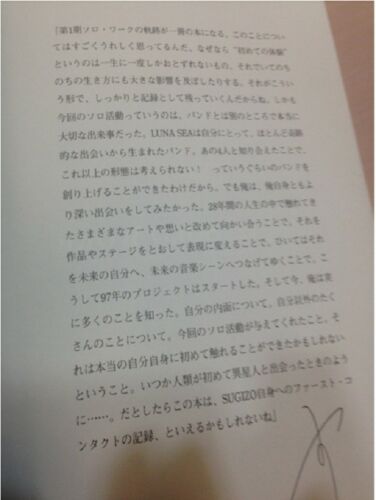 「第1期ソロ・ワークの軌跡が一冊の本になる。このことについ
てはすごくうれしく思ってるんだ。なぜなら“初めての体験”
というのは一生に一度しかおとずれないもの。それでいてのち
のちの生き方にも大きな影響を及ぼしたりする。それがこうい
う形で、しっかりと記録として残っていくんだからね。しかも
今回のソロ活動っていうのは、バンドとは別のところで本当に
大切な出来事だった。LUNA SEAは自分にとって、ほとんど奇跡
的な出会いから生まれたバンド。あの4人と知り合えたことで、
これ以上の形態は考えられない！　っていうぐらいのバンドを
創り上げることができたわけだから。でも俺は、俺自身ともよ
り深い出会いをしてみたかった。28年間の人生の中で触れてき
たさまざまなアートや想いと改めて向かい合うことで、それを
作品やステージをとおして表現に変えることで、ひいてはそれ
を未来の自分へ、未来の音楽シーンへつなげてゆくことで、こ
うして97年のプロジェクトはスタートした。そして今、俺は実
に多くのことを知った。自分の内面について、自分以外のたく
さんのことについて。今回のソロ活動が与えてくれたこと、そ
れは本当の自分自身に初めて触れることができたかもしれない
ということ。いつか人類が初めて異星人と出会ったときのよう
に……。だとしたらこの本は、SUGIZO自身へのファースト・コ
ンタクトの記録、といえるかもしれないね」